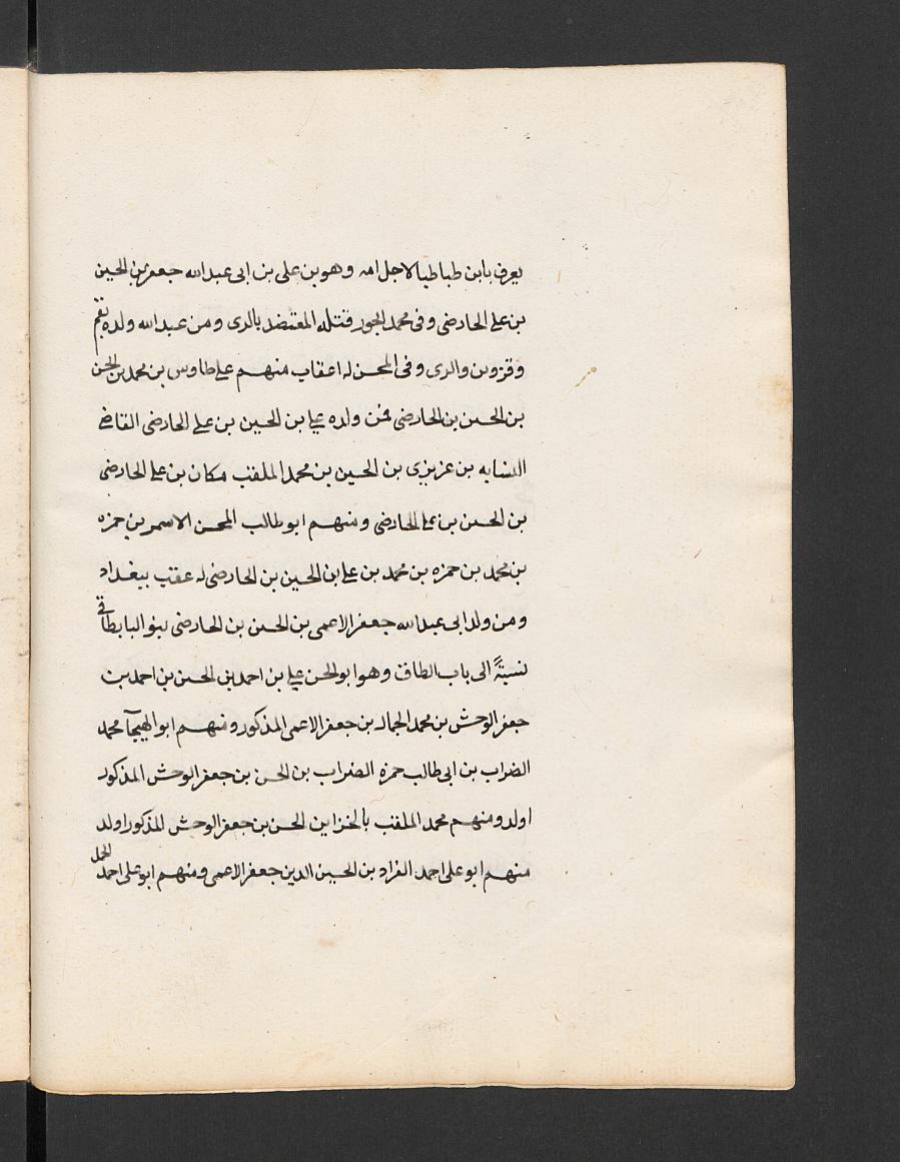 يعرف بابن طباطبا لاجل امه وهو بن على بن ابى عبد الله جعفر بن الحسين
بن على الحارضى وفى محمد الجور قتله المعتضد بالرى ومن عبد الله ولده بقم
وقزوين والرى وفى المحسن له اعقاب منهم على طاوس بن محمد بن الحسن
بن الحسن بن الحارضى فمن ولده على بن الحسين بن على الحارضى القاضى
النسابه بن عزيزى بن الحسين بن محمد الملقب مكان بن على الحارضى
بن الحسن بن على الحارضى ومنهم ابو طالب المحسن الاسمر بن حمزه
بن محمد بن حمزه بن محمد بن على بن الحسين بن الحارضى له عقب ببغداد
ومن ولد ابى عبد الله جعفر الاعمى بن الحسن بن الحارضى بنو البابطاقى
نسبةً الى باب الطاق وهو ابو الحسن على بن احمد بن الحسن بن احمد بن
جعفر الوحش بن محمد الجمال بن جعفر الاعمى المذكور ومنهم ابو الهيجآ محمد
الضراب بن ابى طالب حمزه الضراب بن الحسن بن جعفر الوحش المذكور
اولد ومنهم محمد الملقب بالخزا بن الحسن بن جعفر الوحش المذكور اولد
منهم ابو على احمد بن الحسين الدين جعفر الاعمى ومنهم ابو على احمد